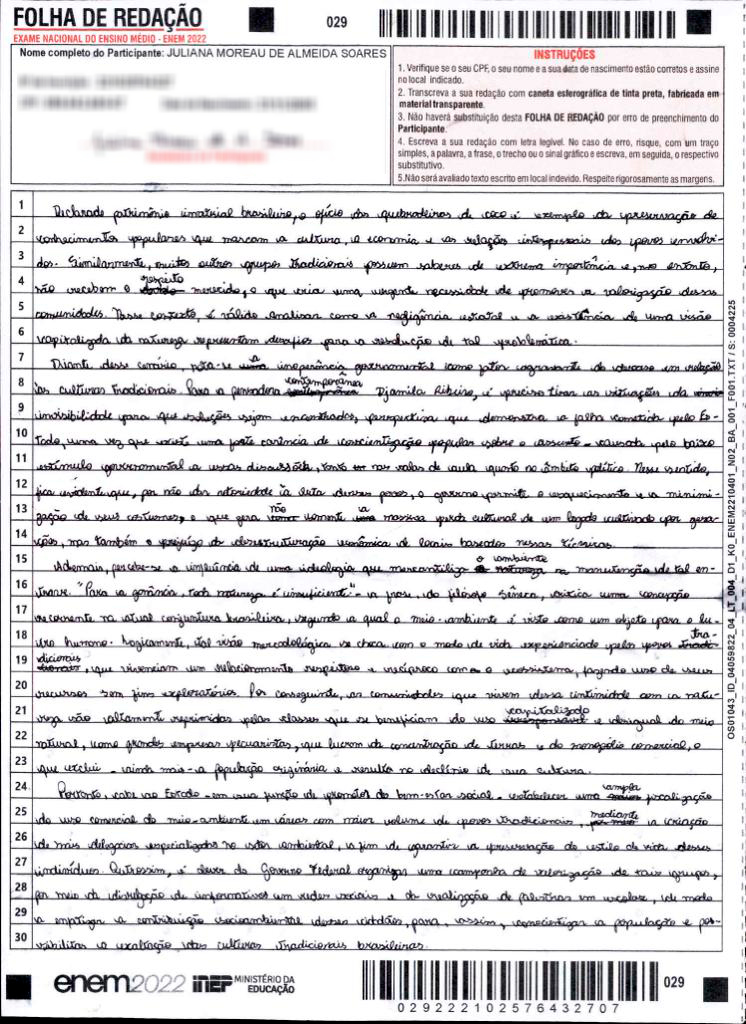 FOLHA DE REDAÇÃO
EXAME NACIONAL DO ENSINO MÉDIO - ENEM 2022
029
Nome completo do Participante: JULIANA MOREAU DE ALMEIDA SOARES
INSTRUÇÕES
1. Verifique se o seu CPF, o seu nome e a sua data de nascimento estão corretos e assine no local indicado.
2. Transcreva a sua redação com caneta esferográfica de tinta preta, fabricada em material transparente.
3. Não haverá substituição desta FOLHA DE REDAÇÃO por erro de preenchimento do Participante.
4. Escreva a sua redação com letra legível. No caso de erro, risque, com um traço simples, a palavra, a frase, o trecho ou o sinal gráfico e escreva, em seguida, o respectivo substitutivo.
5. Não será avaliado texto escrito em local indevido. Respeite rigorosamente as margens.
1 Declarado patrimônio imaterial brasileiro, o ofício das quebradeiras de coco é exemplo da preservação de
2 conhecimentos populares que marcam a cultura, a economia e as relações interpessoais dos povos envolvi-
3 dos. Similarmente, muitos outros grupos tradicionais possuem saberes de extrema importância e, no entanto,
4 não recebem o respeito merecido, o que cria uma urgente necessidade de promover a valorização dessas
5 comunidades. Nesse contexto, é válido analisar como a negligência estatal e a existência de uma visão
6 capitalizada da natureza representam desafios para a resolução de tal problemática.
7 Diante desse cenário, nota-se a inoperância governamental como fator agravante do descaso em relação
8 às culturas tradicionais. Para a pensadora contemporânea Djamila Ribeiro, é preciso tirar as situações da
9 invisibilidade para que soluções sejam encontradas, perspectiva que demonstra a falha cometida pelo Es-
10 tado, uma vez que existe uma forte carência de conscientização popular sobre o assunto - causada pelo baixo
11 estímulo governamental a essas discussões, tanto nas salas de aula quanto no âmbito político. Nesse sentido,
12 fica evidente que, por não dar notoriedade à luta desses povos, o governo permite o esquecimento e a minimi-
13 zação de seus costumes, o que gera não somente a massiva perda cultural de um legado cultivado por gera-
14 ções, mas também o prejuízo da desestruturação econômica de locais baseados nessas técnicas.
15 Ademais, percebe-se a influência de uma ideologia que mercantiliza o ambiente na manutenção de tal en-
16 trave. "Para a ganância, toda natureza é insuficiente" - a frase, do filósofo Sêneca, critica uma concepção
17 recorrente na atual conjuntura brasileira, segundo a qual o meio-ambiente é visto como um objeto para o lu-
18 cro humano. Logicamente, tal visão mercadológica se choca com o modo de vida experienciado pelos povos tra-
19 dicionais, que vivenciam um relacionamento respeitoso e recíproco com o ecossistema, fazendo uso de seus
20 recursos sem fins exploratórios. Por conseguinte, as comunidades que vivem dessa intimidade com a natu-
21 reza são altamente reprimidas pelas classes que se beneficiam do uso capitalizado e desigual do meio
22 natural, como grandes empresas pecuaristas, que lucram da concentração de terras e do monopólio comercial, o
23 que exclui - ainda mais - a população originária e resulta no declínio de sua cultura.
24 Portanto, cabe ao Estado - em sua função de promotor do bem-estar social - estabelecer uma ampla fiscalização
25 do uso comercial do meio-ambiente em áreas com maior volume de povos tradicionais, mediante a criação
26 de mais delegacias especializadas no setor ambiental, a fim de garantir a preservação do estilo de vida desses
27 indivíduos. Outrossim, é dever do Governo Federal organizar uma campanha de valorização de tais grupos,
28 por meio da divulgação de informativos em redes sociais e da realização de palestras em escolas, de modo
29 a enfatizar a contribuição socioambiental desses cidadãos, para, assim, conscientizar a população e pos-
30 sibilitar a exaltação das culturas tradicionais brasileiras.
OS01043_ID_04059822_04_LT_004_D1_K0_ENEM2210401_N02_BA_001_F0001.TXT / S: 0004225
enem2022 INEP MINISTÉRIO DA EDUCAÇÃO
029222102576432707
029